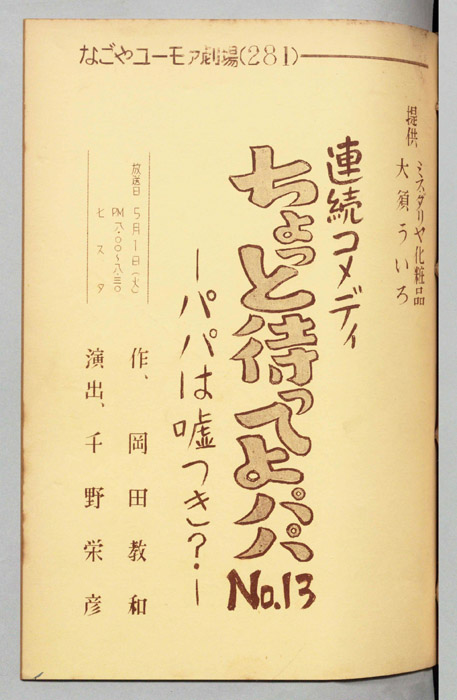 なごやユーモア劇場(281)
提供 ミスダリヤ化粧品
大須ういろ
連続コメディ
ちょっと待ってよパパ No.13
ーパパは嘘つき?ー
放送日 5月1日(火)
PM 八.00〜八.三〇
ヒスタ
作、岡田教和
演出、千野栄彦